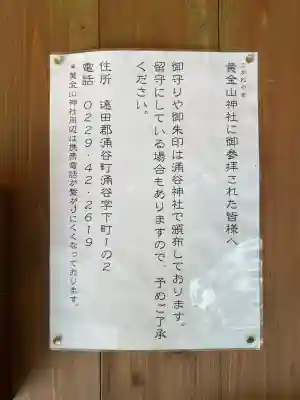 こがねやま
黄金山神社に御参拝された皆様へ
御守りや御朱印は涌谷神社で頒布しております。
留守にしている場合もありますので、予めご了承
ください。
住所　遠田郡涌谷町涌谷字下町1の2
電話　0229-42-2619
*黄金山神社周辺は携帯電話が繋がりにくくなっております。